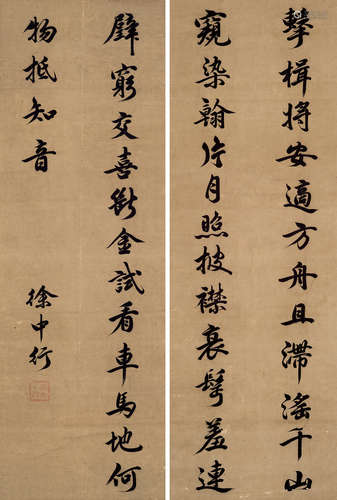 擊楫將安適方舟且滯滛千山
窺染翰片月照披襟衰髩羞連
璧窮交喜斷金試看車馬地何
物抵知音
徐中行